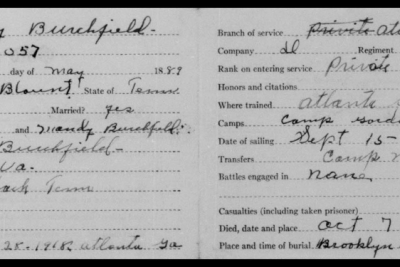 Burchfield
057
day of May 1889
Blount State of Tenn
Married? yes
and Mandy Burchfield
Burchfield
Va.
Tenn
28-1918 Atlanta Ga
Branch of service Private
Company Regiment
Rank on entering service Private
Honors and citations
Where trained Atlanta
Camps Camp Gordon
Date of sailing Sept 15-
Transfers Camp
Battles engaged in None
Casualties (including taken prisoner)
Died, date and place Oct 7
Place and time of burial Brooklyn